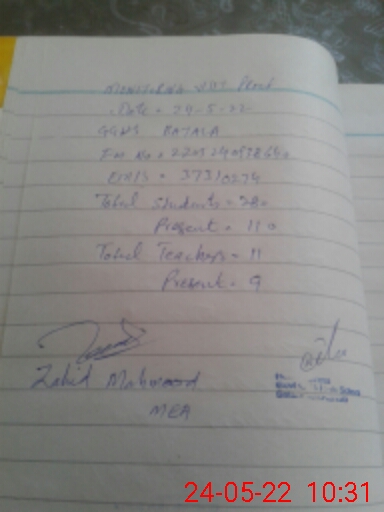 Monitoring visit Proof
Date = 24-5-22
GGHS BATALA
EMIS = 37310274
Total Students = 280
Present = 110
Total Teachers = 11
Present = 9
Zahid Mahmood
MEA
24-05-22 10:31